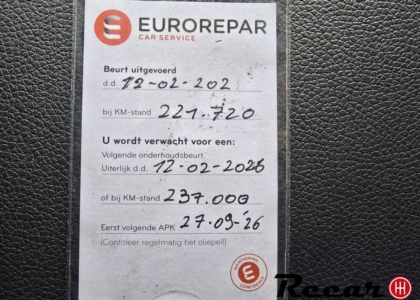 EUROREPAR
CAR SERVICE
Beurt uitgevoerd
d.d. 12-02-202
bij KM-stand 221.720
U wordt verwacht voor een:
Volgende onderhoudsbeurt
Uiterlijk d.d. 12-02-2026
of bij KM-stand 237.000
Eerst volgende APK 27-09-'26
(Controleer regelmatig het oliepeil)
Recar